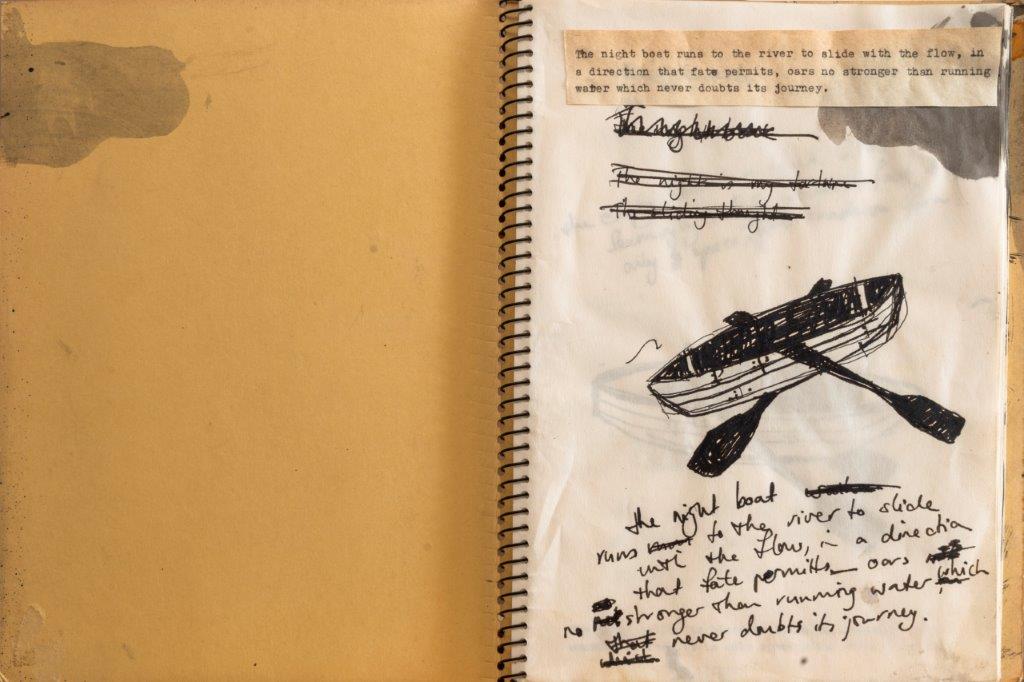 The night boat runs to the river to slide with the flow, in
a direction that fate permits, oars no stronger than running
water which never doubts its journey.
The night is my
The sliding thought
the night boat
runs to the river to slide
with the flow, in a direction
that fate permits oars
no stronger than running water, which
never doubts its journey.